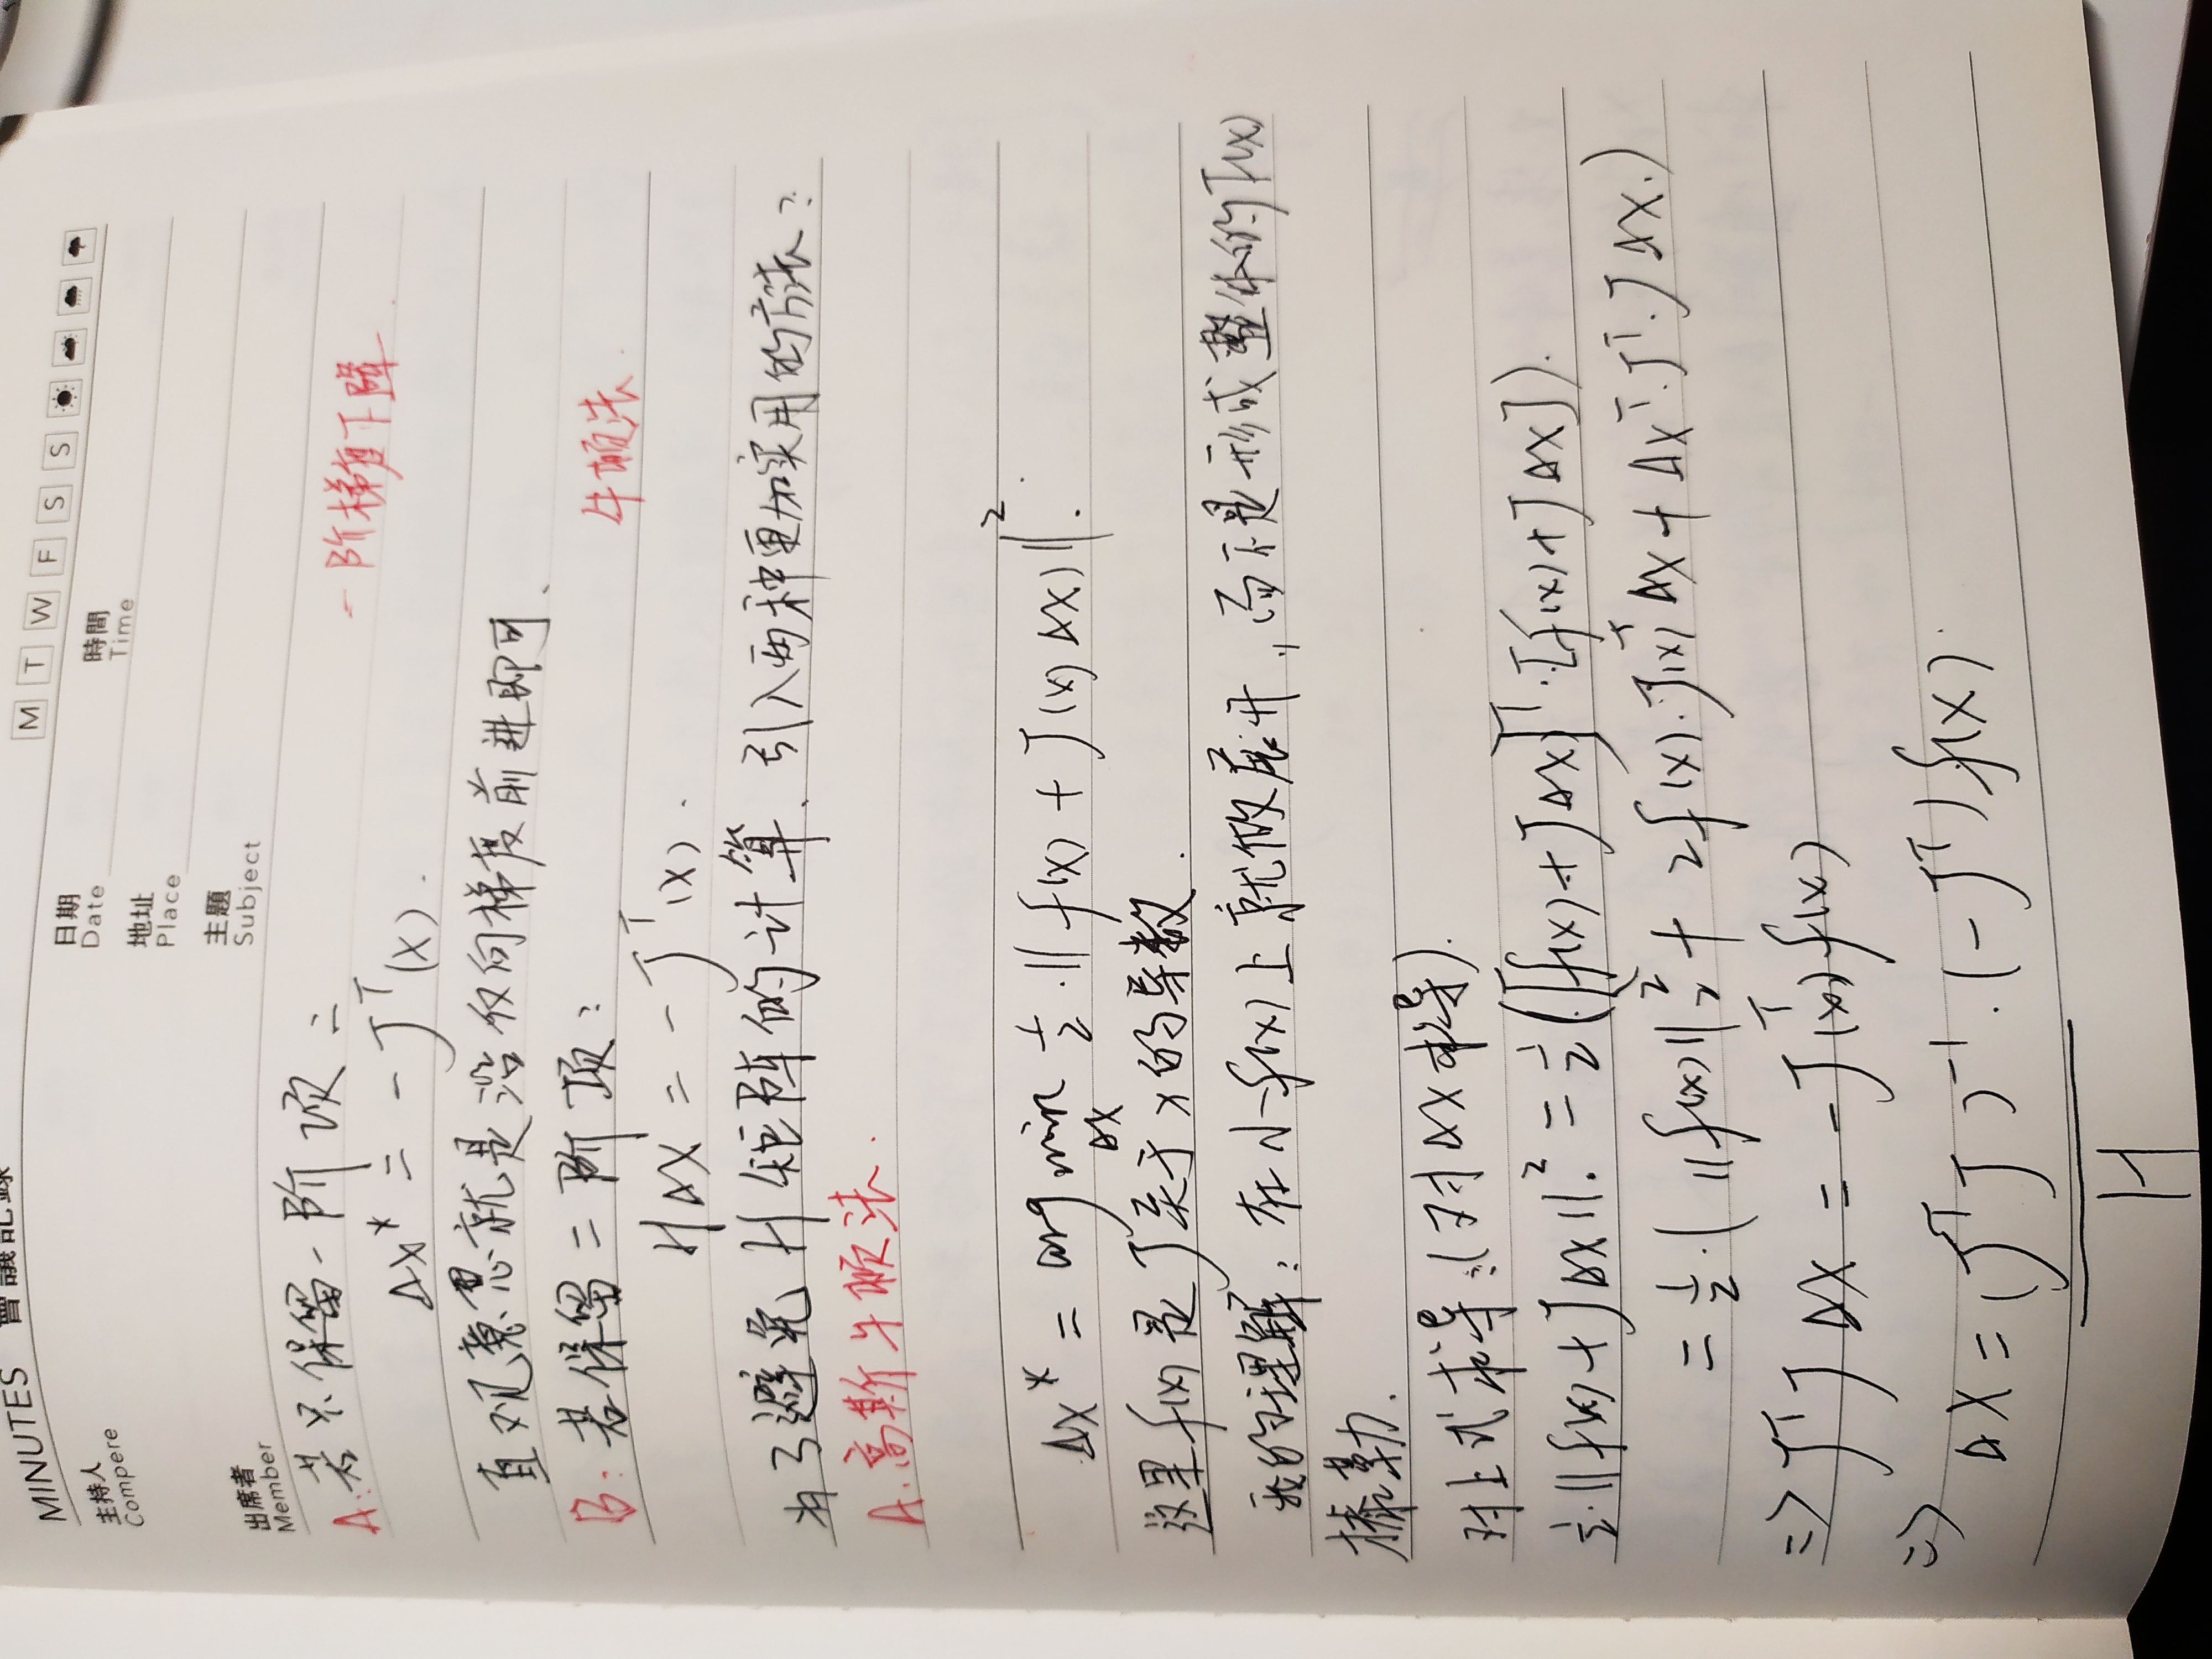 MINUTES 會議記錄
M T W F S S
主持人
Compere
日期
Date
時間
Time
地址
Place
主題
Subject
出席者
Member
A: 若只保留一阶项: 一阶梯度下降.
Δx* = -Jᵀ(x).
直观意思就是沿仅向梯度前进即可.
B: 若保留二阶项: 牛顿法.
HΔx = -Jᵀ(x).
为了避免H矩阵的计算、引入两种更加实用的方法:
A.高斯牛顿法.
Δx* = arg min_Δx 1/2·‖f(x) + J(x)Δx)‖².
这里f(x)是J关于x的导数.
我的理解: 在小f(x)上就做展开, 而不是形成整体的F(x)
勒.
对上式求导:(对Δx求导).
1/2·‖f(x)+JΔx‖².=1/2([f(x)+JΔx]ᵀ·[f(x)+JΔx]).
=1/2·(‖f(x)‖₂²+2f(x)·J(x)ᵀΔx+Δxᵀ·Jᵀ·JΔx.)
=> JᵀJΔx = -J(x)ᵀf(x)
=> Δx=(JᵀJ)⁻¹·(-Jᵀ)f(x).
H